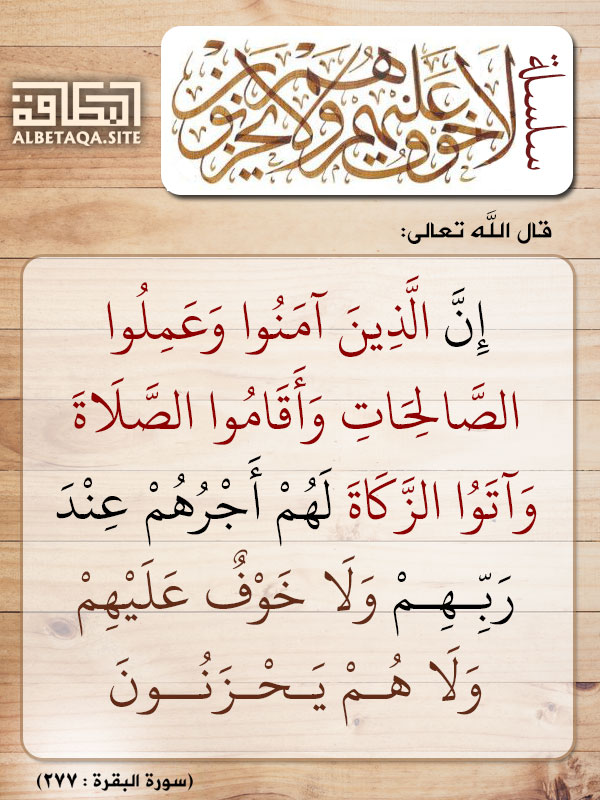 البطاقة
ALBETAQA.SITE
سلسلة
لا خوف عليهم ولا هم يحزنون
قال اللَّه تعالى:
إِنَّ الَّذِينَ آمَنُوا وَعَمِلُوا
الصَّالِحَاتِ وَأَقَامُوا الصَّلَاةَ
وَآتَوُا الزَّكَاةَ لَهُمْ أَجْرُهُمْ عِنْدَ
رَبِّـهِـمْ وَلَا خَوْفٌ عَلَيْهِمْ
وَلَا هُـمْ يَـحْـزَنُـــونَ
(سورة البقرة : ٢٧٧)